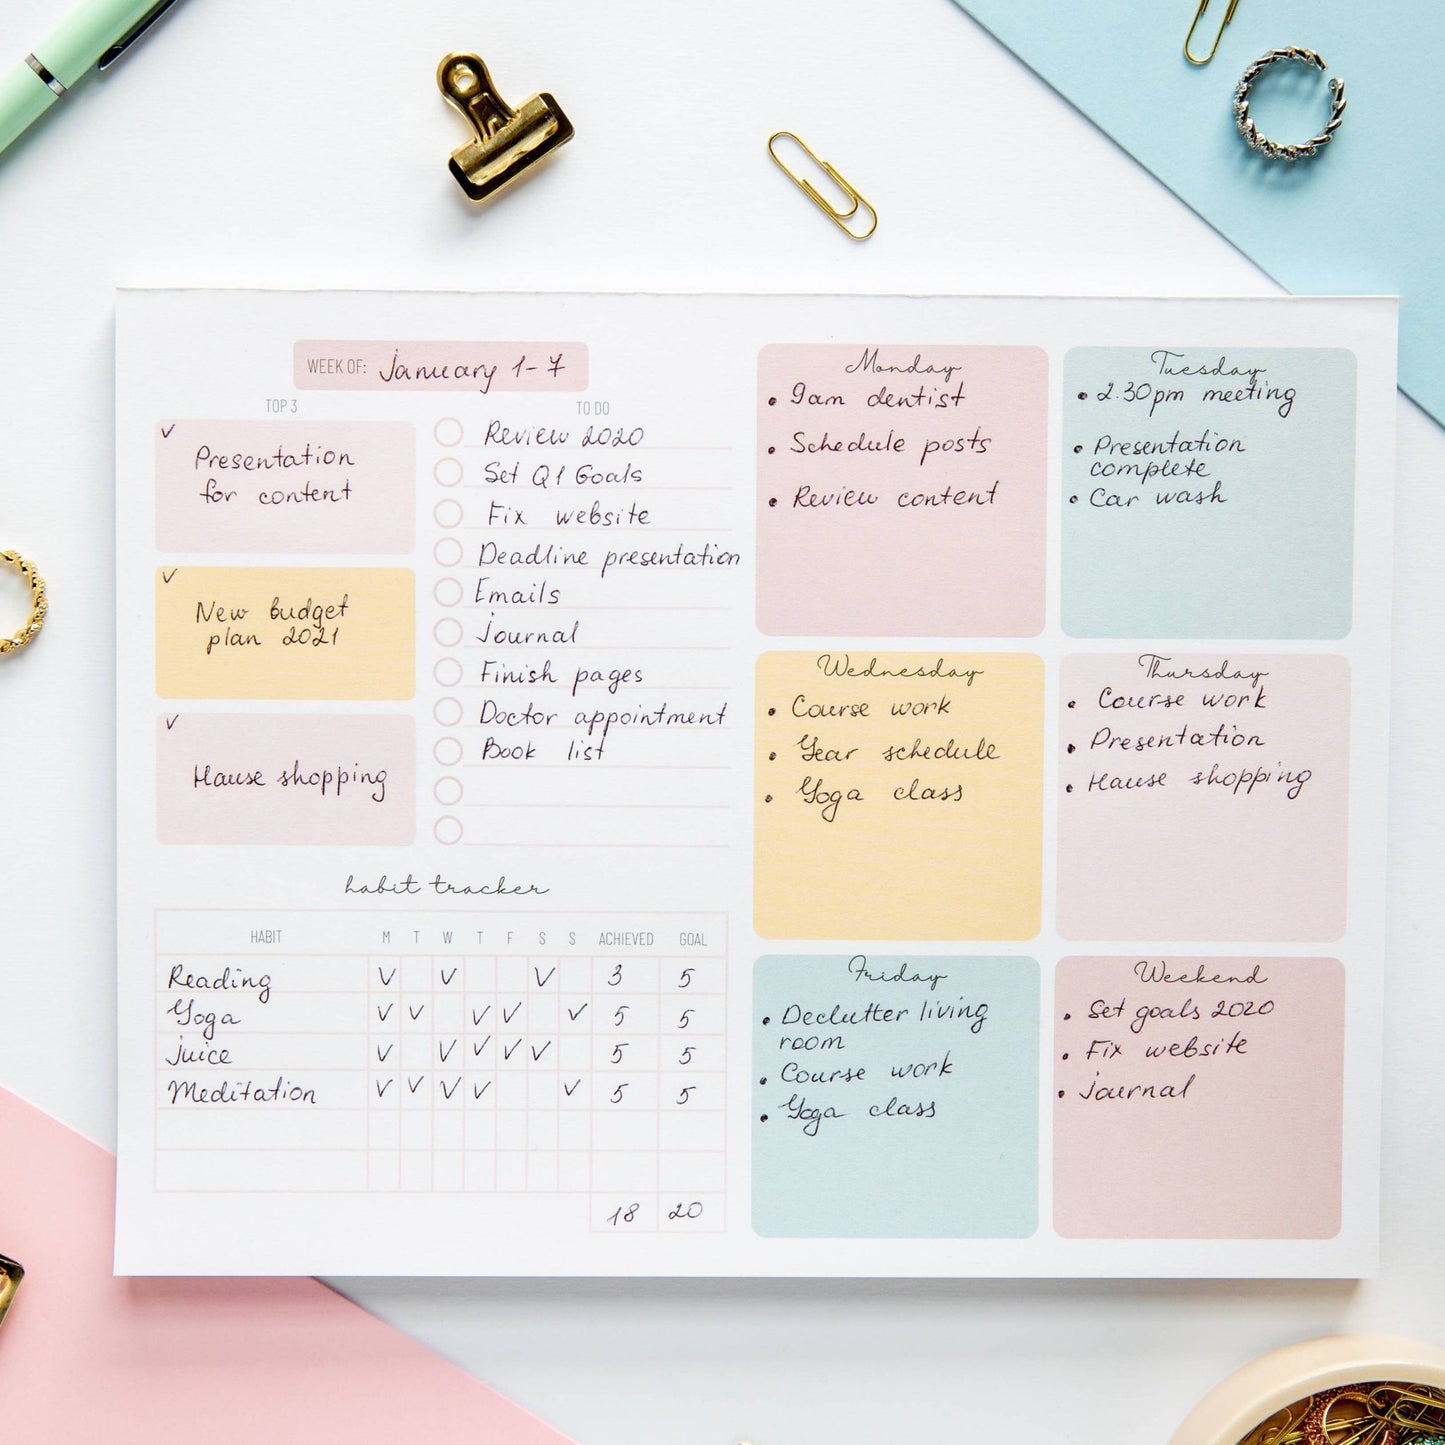 WEEK OF: January 1-7
TOP 3
Presentation
for content
New budget
plan 2021
Hause shopping
TO DO
Review 2020
Set Q1 Goals
Fix website
Deadline presentation
Emails
Journal
Finish pages
Doctor appointment
Book list
habit tracker
HABIT M T W T F S S ACHIEVED GOAL
Reading ✓ ✓ ✓ 3 5
Yoga ✓ ✓ ✓ ✓ ✓ 5 5
Juice ✓ ✓ ✓ ✓ ✓ 5 5
Meditation ✓ ✓ ✓ ✓ ✓ 5 5
18 20
Monday
• 9am dentist
• Schedule posts
• Review content
Tuesday
• 2.30pm meeting
• Presentation
complete
• Car wash
Wednesday
• Course work
• Year schedule
• Yoga class
Thursday
• Course work
• Presentation
• Hause shopping
Friday
• Declutter living
room
• Course work
• Yoga class
Weekend
• Set goals 2020
• Fix website
• Journal